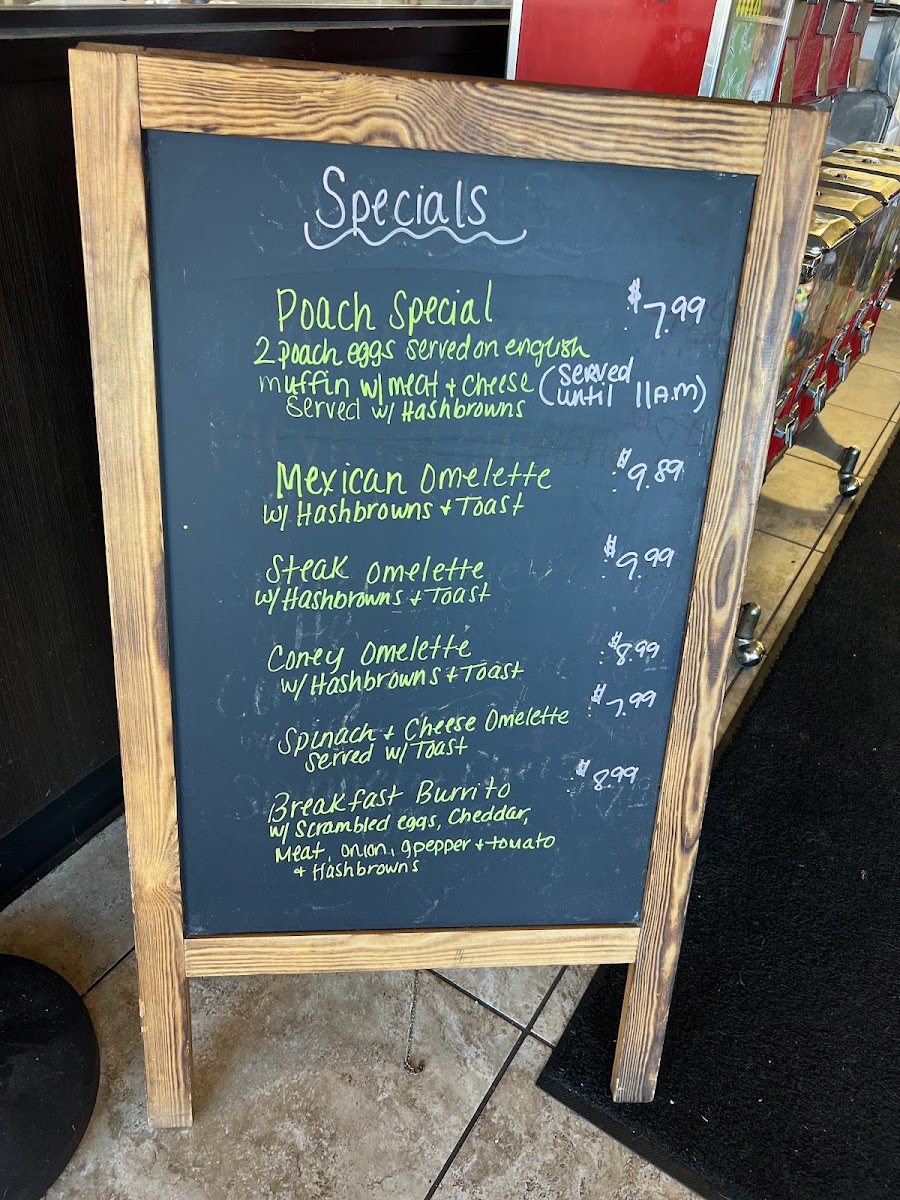 Specials
Poach Special $7.99
2 poach eggs served on english
muffin w/ meat + cheese (served
served w/ Hashbrowns until 11A.M)
Mexican Omelette $9.89
w/ Hashbrowns + Toast
Steak Omelette $9.99
w/ Hashbrowns + Toast
Coney Omelette $8.99
w/ Hashbrowns + Toast
Spinach + Cheese Omelette $7.99
Served w/ Toast
Breakfast Burrito $8.99
w/ Scrambled eggs, Cheddar,
Meat, onion, gpepper + tomato
+ Hashbrowns